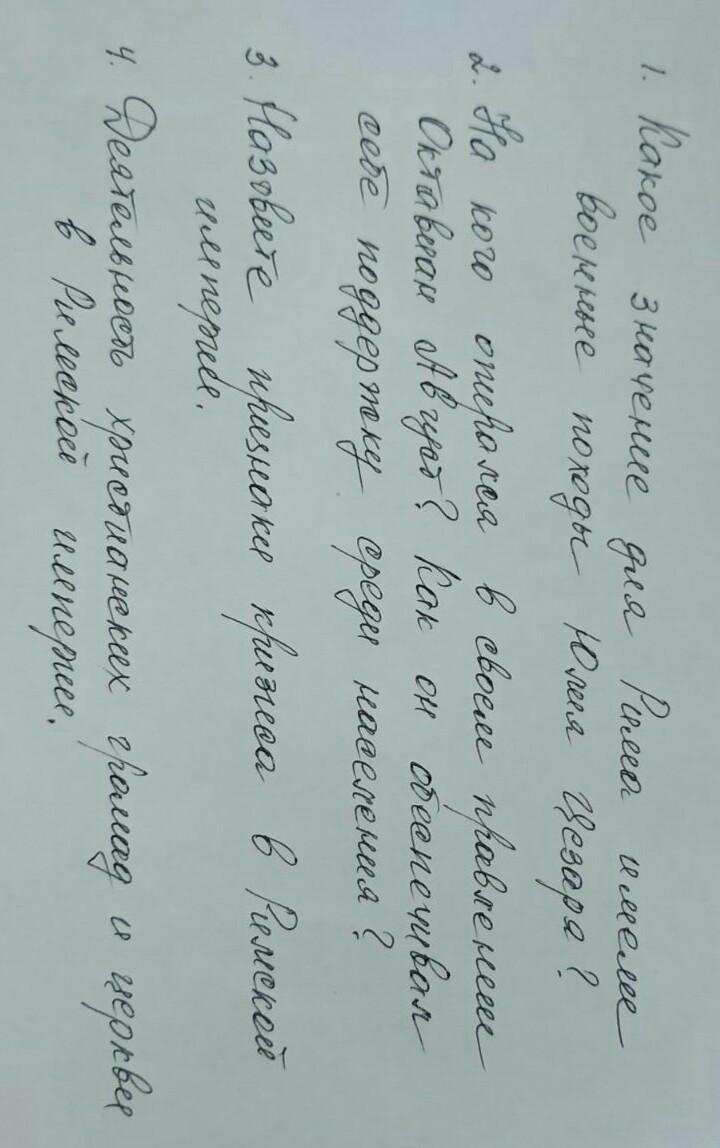 1. Какое значение для Рима имели
военные походы Юлия Цезаря?
2. На кого опирался в своем правлении
Октавиан Август? Как он обеспечивал
себе поддержку среди населения?
3. Назовите признаки кризиса в Римской
империи.
4. Деятельность христианских громад и церквей
в Римской империи.